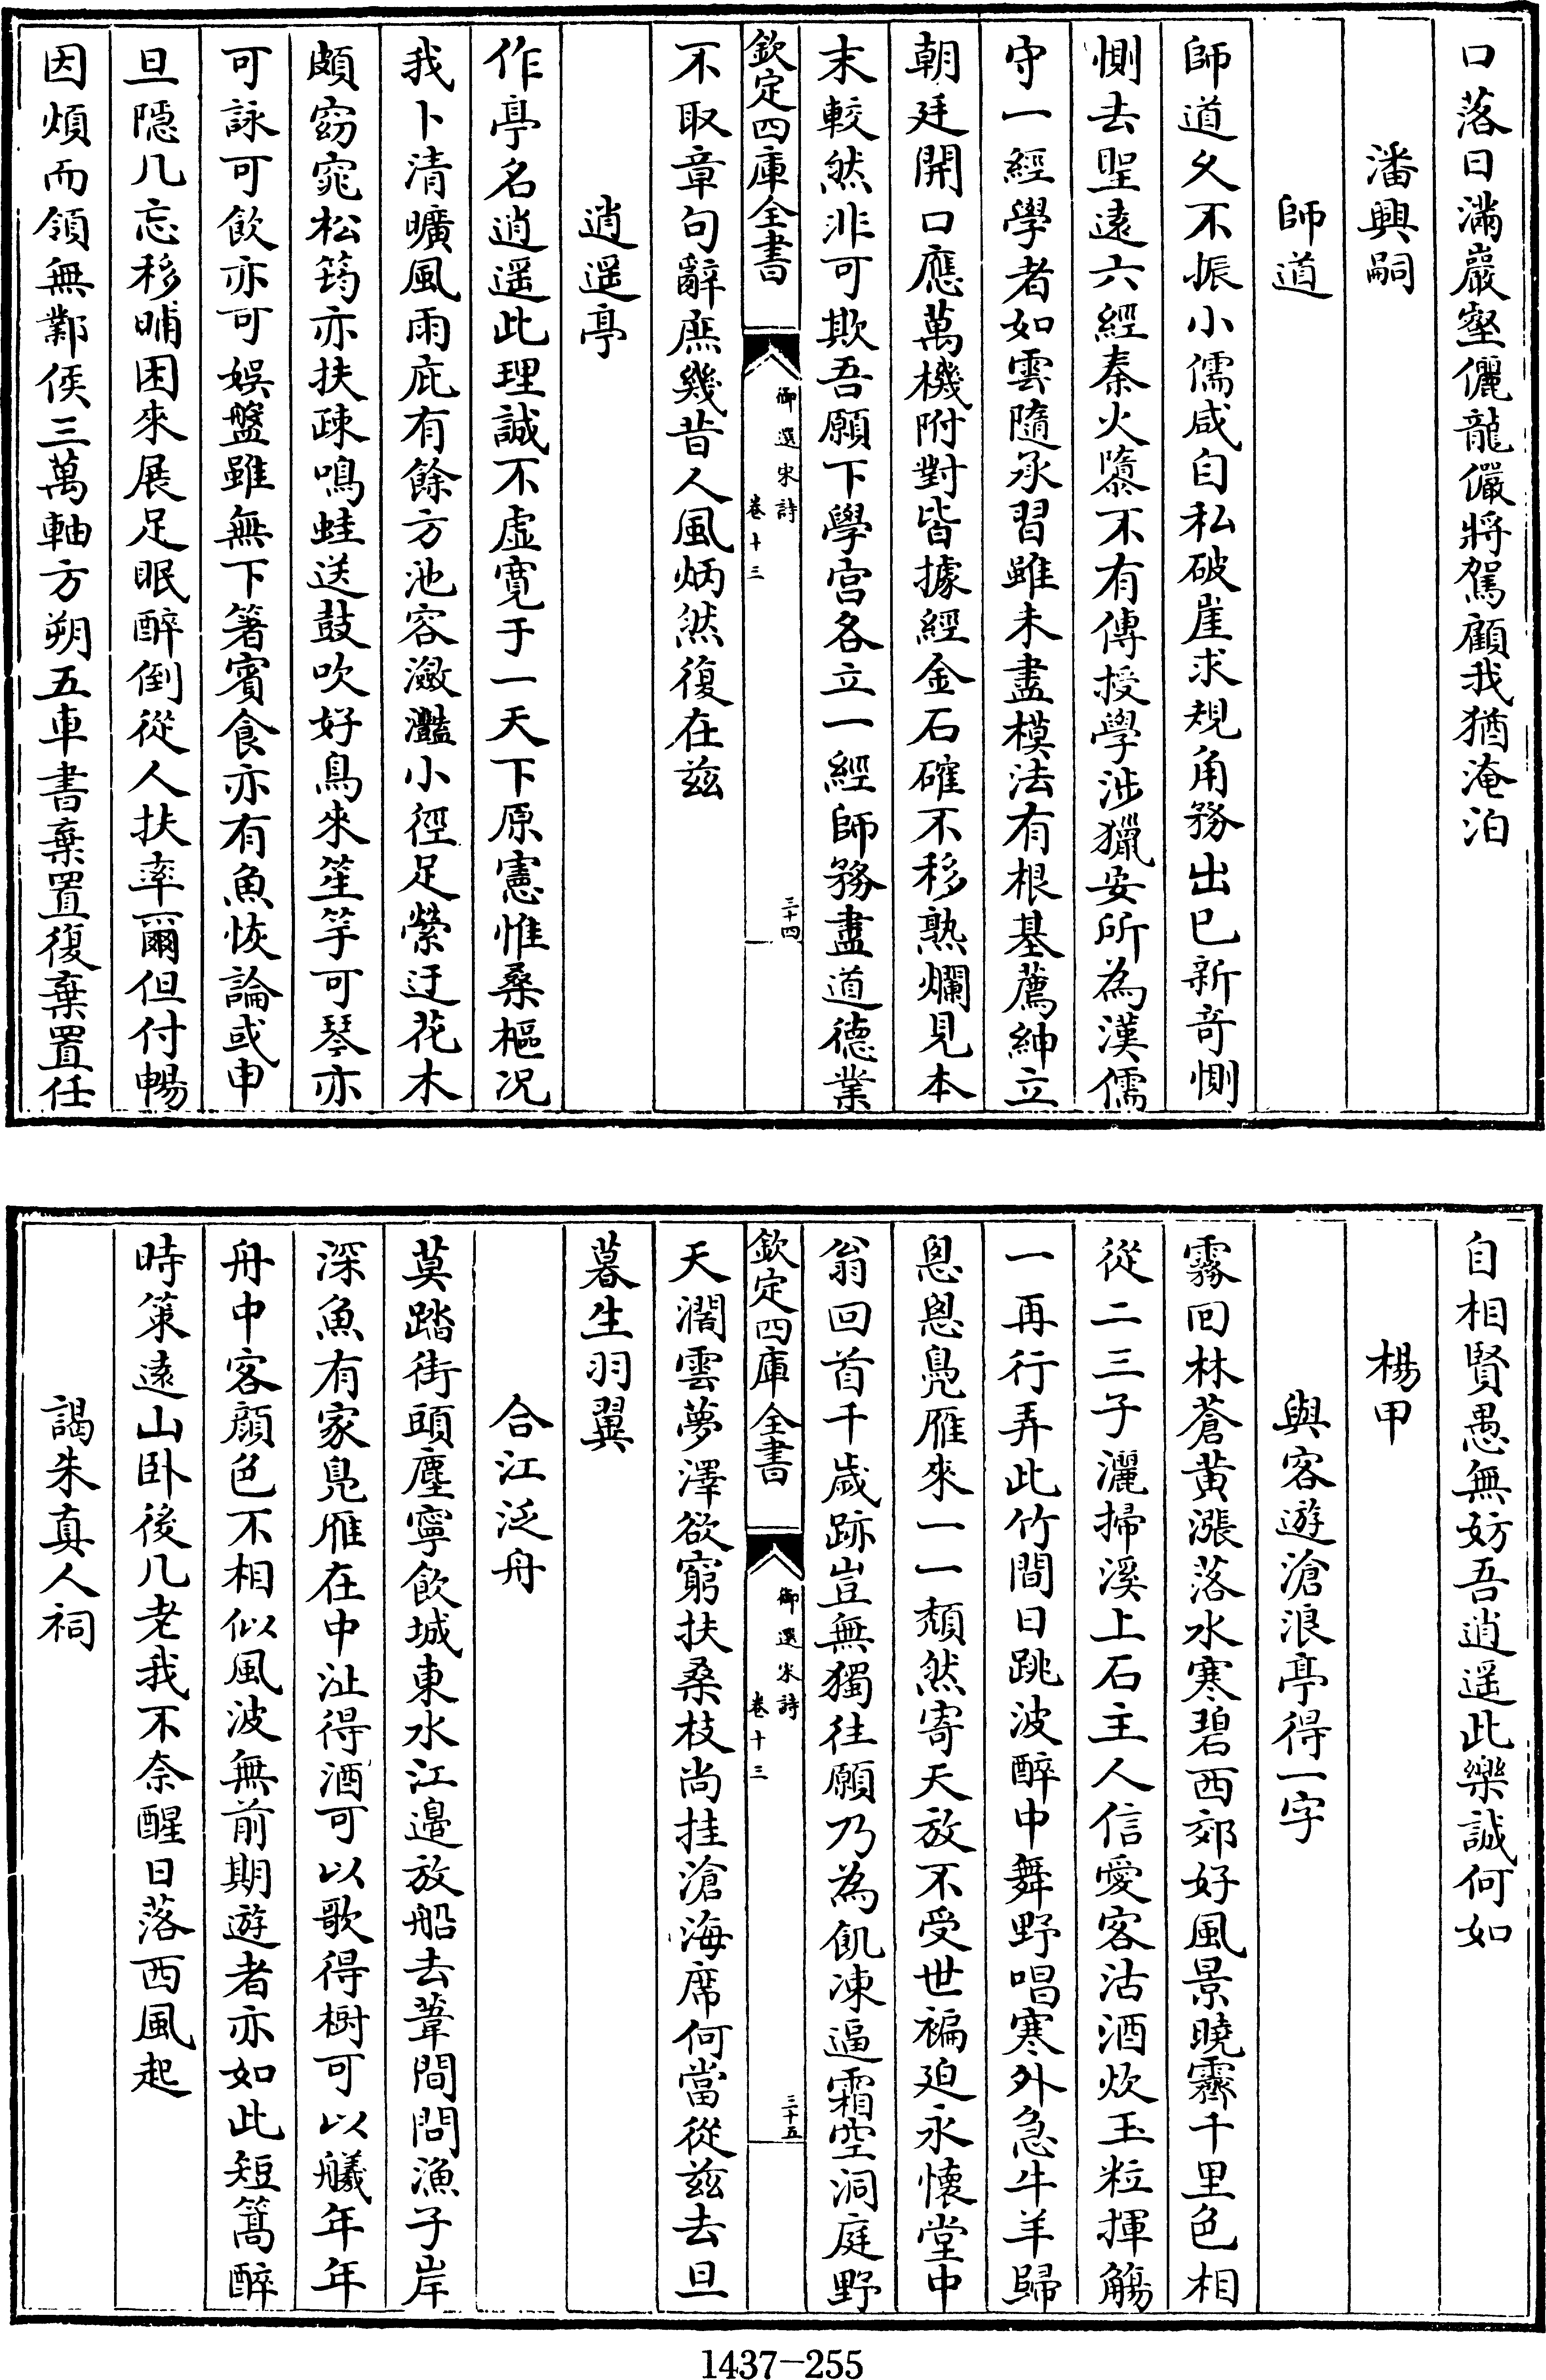 口落日滿巖壑儷龍儼將駕顧我猶淹泊
潘興嗣
師道
師道久不振小儒咸自私破崖求規角務出已新竒惻
惻去聖遠六經秦火隳不有傳授學涉獵安所為漢儒
守一經學者如雲隨承習雖未盡模法有根基薦紳立
朝廷開口應萬機附對皆據經金石確不移熟爛見本
末較然非可欺吾願下學宫各立一經師務盡道德業
欽定四庫全書
御選宋詩
卷十三
三十四
不取章句辭庶幾昔人風炳然復在兹
逍遥亭
作亭名逍遥此理誠不虚寛于一天下原憲惟桑樞况
我卜清曠風雨庇有餘方池容瀲灩小徑足縈迂花木
頗窈窕松筠亦扶疎鳴蛙送鼓吹好鳥來笙竽可琴亦
可詠可飲亦可娛盤雖無下箸賓食亦有魚恢論或申
旦隱几忘移晡困來展足眠醉倒從人扶率爾但付暢
因煩而領無鄴侯三萬軸方朔五車書棄置復棄置任
自相賢愚無妨吾逍遥此樂誠何如
楊甲
與客遊滄浪亭得一字
霧囘林蒼黄漲落水寒碧西郊好風景曉霽千里色相
從二三子灑掃溪上石主人信愛客沽酒炊玉粒揮觴
一再行弄此竹間日跳波醉中舞野唱寒外急牛羊歸
恖恖鳧雁來一一頹然寄天放不受世褊廹永懷堂中
翁回首千歲跡豈無獨往願乃為飢凍逼霜空洞庭野
欽定四庫全書
御選宋詩
卷十三
三十五
天濶雲夢澤欲窮扶桑枝尚挂滄海席何當從兹去旦
暮生羽翼
合江泛舟
莫踏街頭塵寧飲城東水江邉放船去葦間問漁子岸
深魚有家鳧雁在中沚得酒可以歌得樹可以艤年年
舟中客顔色不相似風波無前期遊者亦如此短篙醉
時策遠山卧後几老我不奈醒日落西風起
謁朱真人祠
1437-255